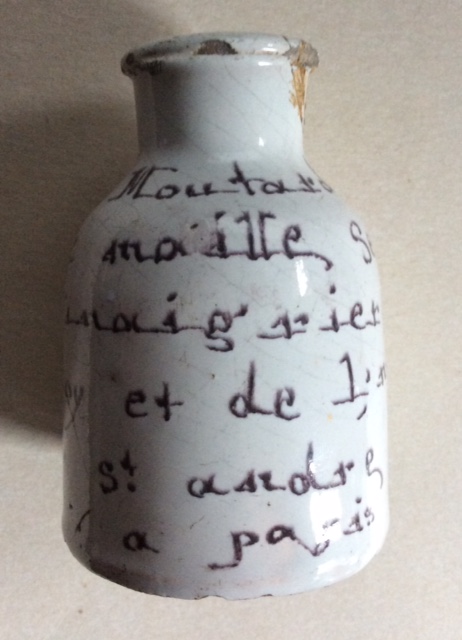 Moutard
maille S
inaigrier
oy et de l'
st. andre
a paris